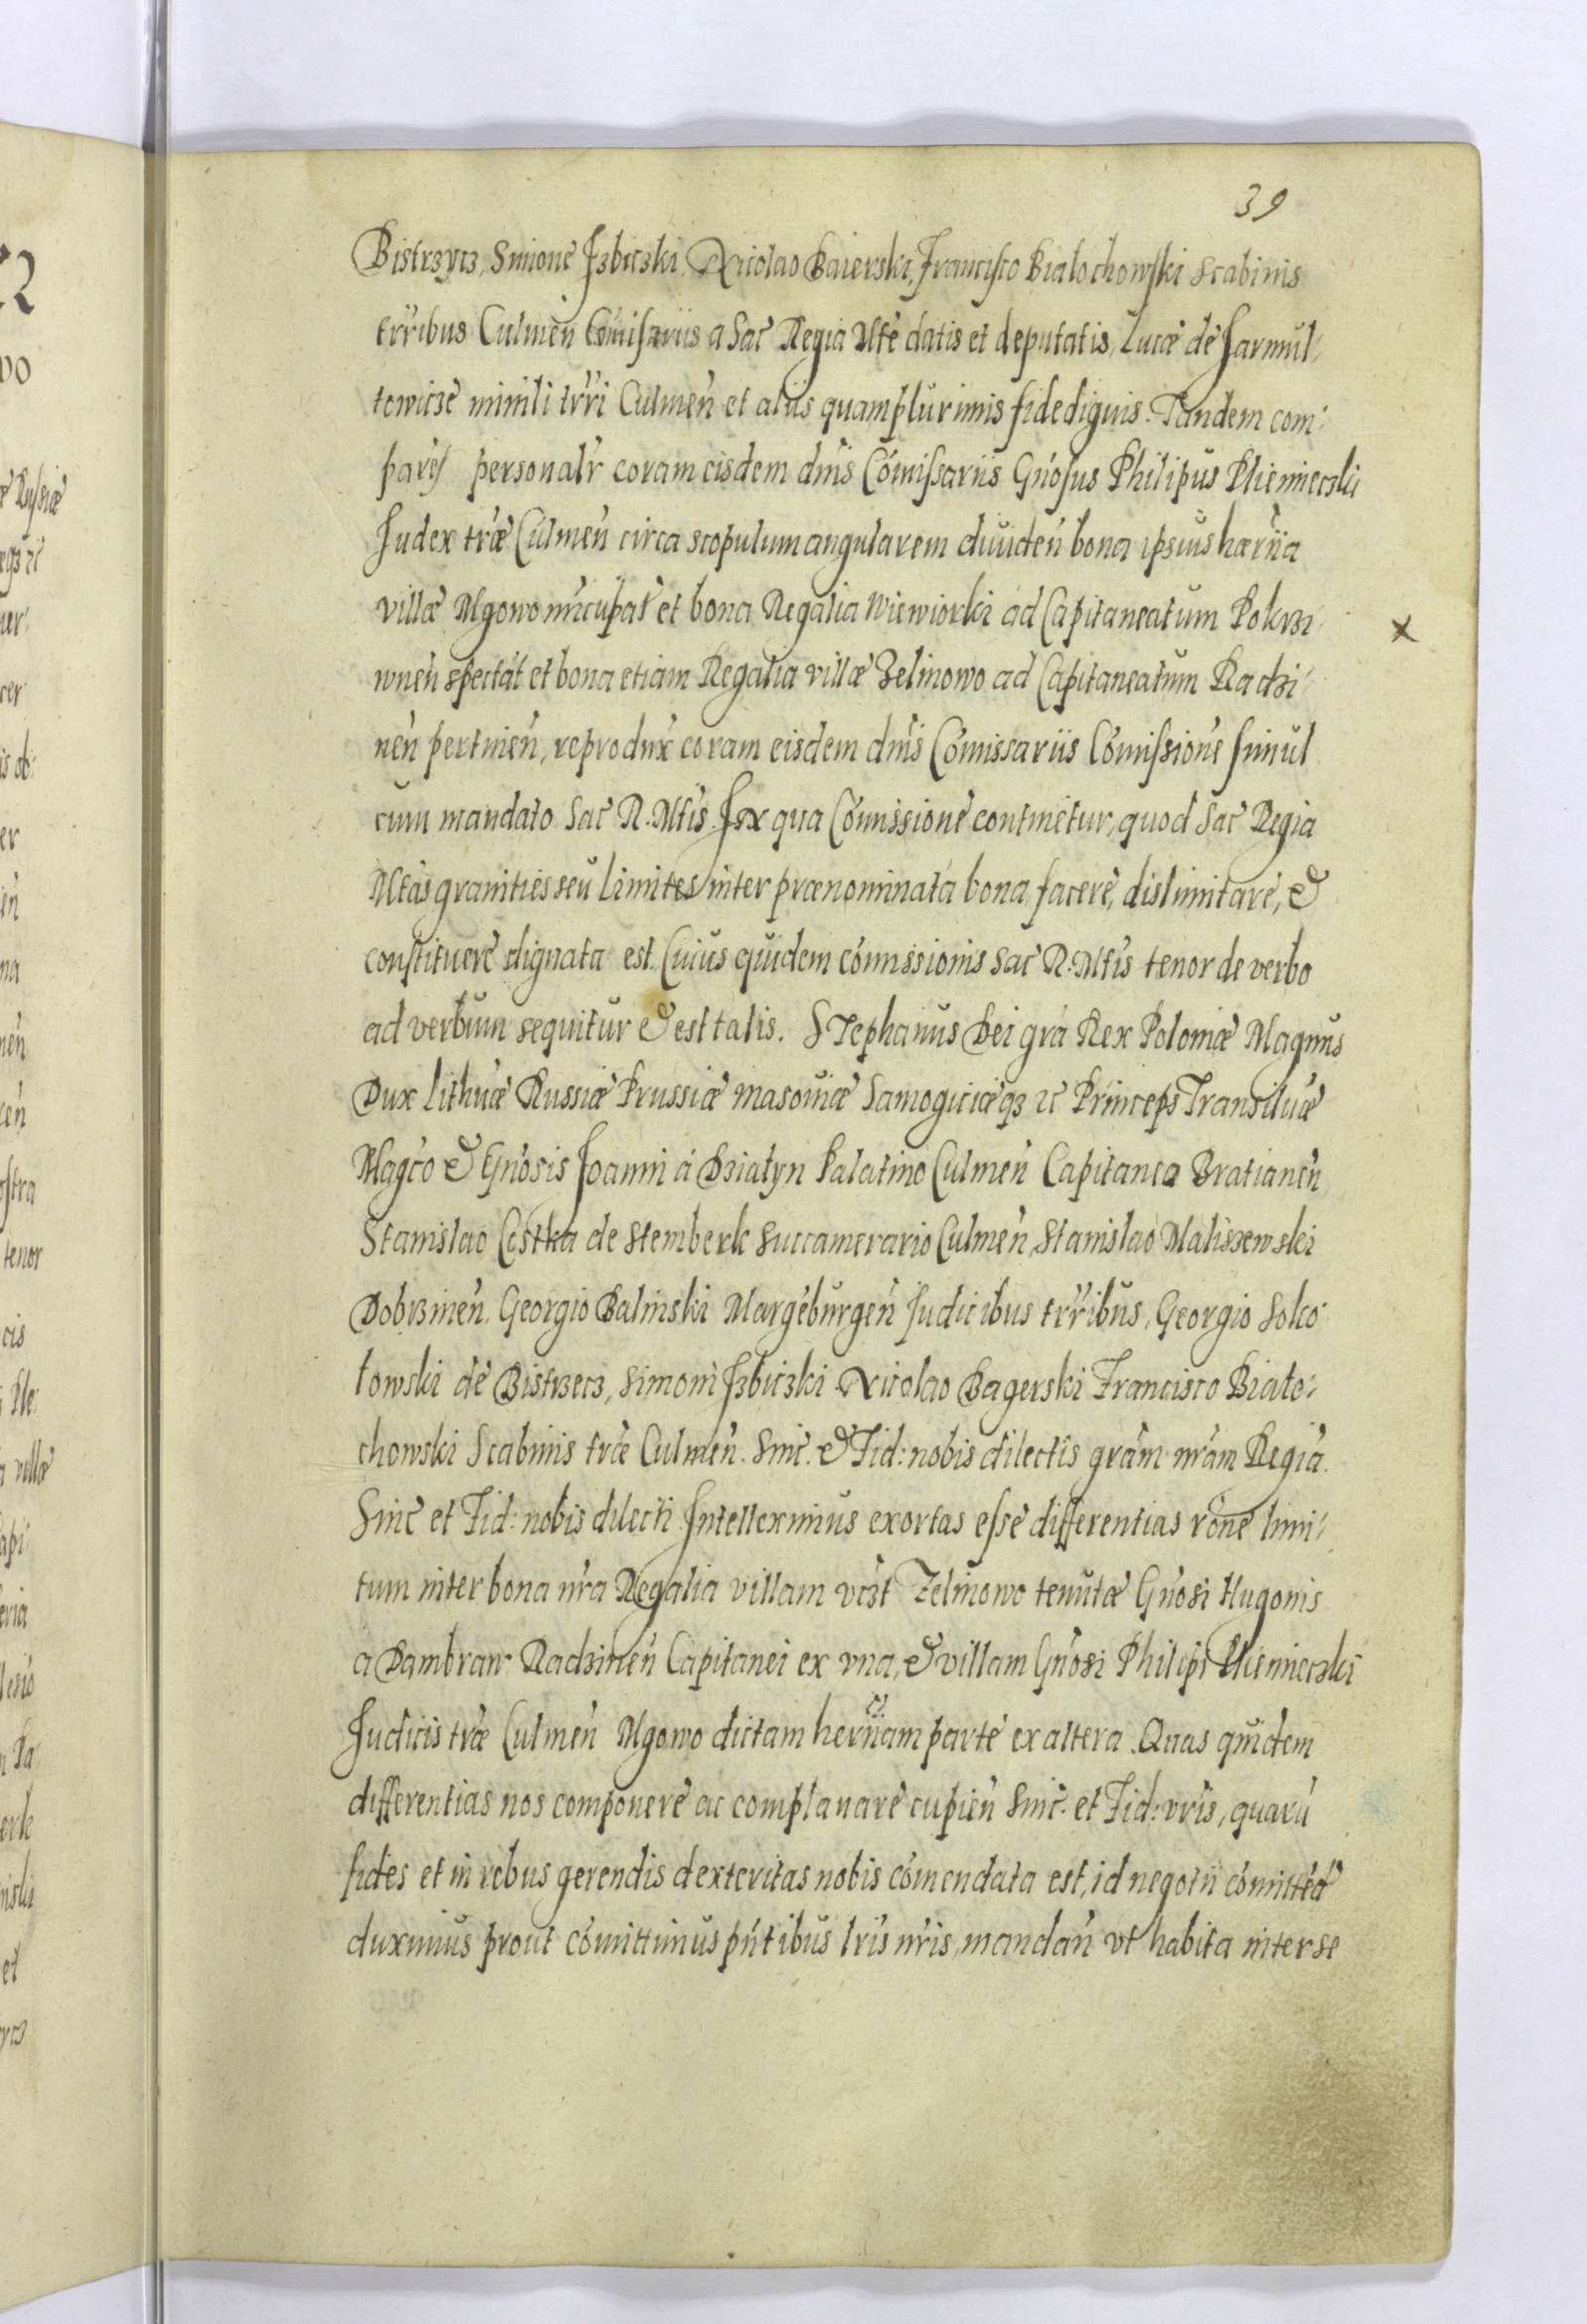 39
Bistrzycz, Simone Jzbiczki, Nicolao Baierski, Francisco Bialochowski Scabinis
trribus Culmeń Comisariis a Sac Regia Mte datis et deputatis, Lucæ de Jarmul-
towicze ministli trri Culmeń et aliis quamplurimis fidedignis. Tandem com-
pareƞ personalr coram eisdem dnis Comissariis Gnosus Philipus Plemieczki
Judex træ Culmeń circa scopulum angularem diuideń bona ipsius hæriia
villæ Mgowo nucupat et bona Regalia Wiewiorki ad Capitaneatum Pokrzi-
wneń spectat et bona etiam Regalia villæ Zelinowo ad Capitaneatum Radzi-
neń pertineń, reprodux coram eisdem dnis Comissariis Comissione simul
cum mandato Sac R. Mtis. Ex qua Comissione continetur, quod Sac Regia
Mtas granities seu limites inter prænominata bona facere, dislimitare, &
constituere dignata est. Cuius quidem comissionis Sac R. Mtis tenor de verbo
ad verbum sequitur & est talis. STephanus Dei gra Rex Poloniæ Magnus
Dux Lithuæ Russiæ Prussiæ Masouiæ Samogiciæqz zc Princeps Transiluæ
Magco & Gnosis Joanni a Dzialyn Palatino Culmeń Capitaneo Bratianeń
Stanislao Costka de Stemberk Succamerario Culmeń, Stanislao Maliszewski
Dobrzineń. Georgio Balinski Margeburgeń Judicibus trribus, Georgio Soko-
lowski de Bistrzecz, Simoni Jzbiczki Nicolao Bagerski Francisco Bialo-
chowski Scabinis træ Culmeń. Sinc. & Fid: nobis dilectis gram nram Regia.
Sinc et Fid: nobis dilecti Intelleximus exortas esse differentias rone limi-
tum inter bona nra Regalia villam vczt Zelinowo tenutæ Gnosi Hugonis
a Dambraw Radzineń Capitanei ex vna, & villam Gnosi Philipi Plemieczki
Judicis træ Culmeń Mgowo dictam heriiam parte ex altera. Quas quidem
differentias nos componere ac complanare cupień Sinc. et Fid: vris, quaru
fides et in rebus gerendis dexteritas nobis comendata est, id negotii comitted
duximus prout comittimus pntibus lris nris, mandań vt habita inter se